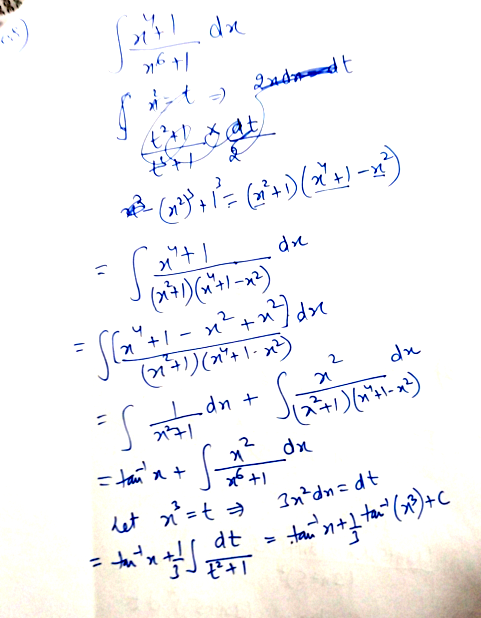 ∫ x⁴+1 / x⁶+1 dx
∫ x²=t ⇒ 2xdx=dt
t²+1 / t³+1 × dt / 2
(x²)³+1³ = (x²+1)(x⁴+1-x²)
= ∫ x⁴+1 / (x²+1)(x⁴+1-x²) dx
= ∫ [x⁴+1-x²+x²] / (x²+1)(x⁴+1-x²) dx
= ∫ 1 / x²+1 dx + ∫ x² / (x²+1)(x⁴+1-x²) dx
= tan⁻¹ x + ∫ x² / x⁶+1 dx
Let x³=t ⇒ 3x²dx=dt
= tan⁻¹ x + 1/3 ∫ dt / t²+1 = tan⁻¹ x + 1/3 tan⁻¹ (x³)+C